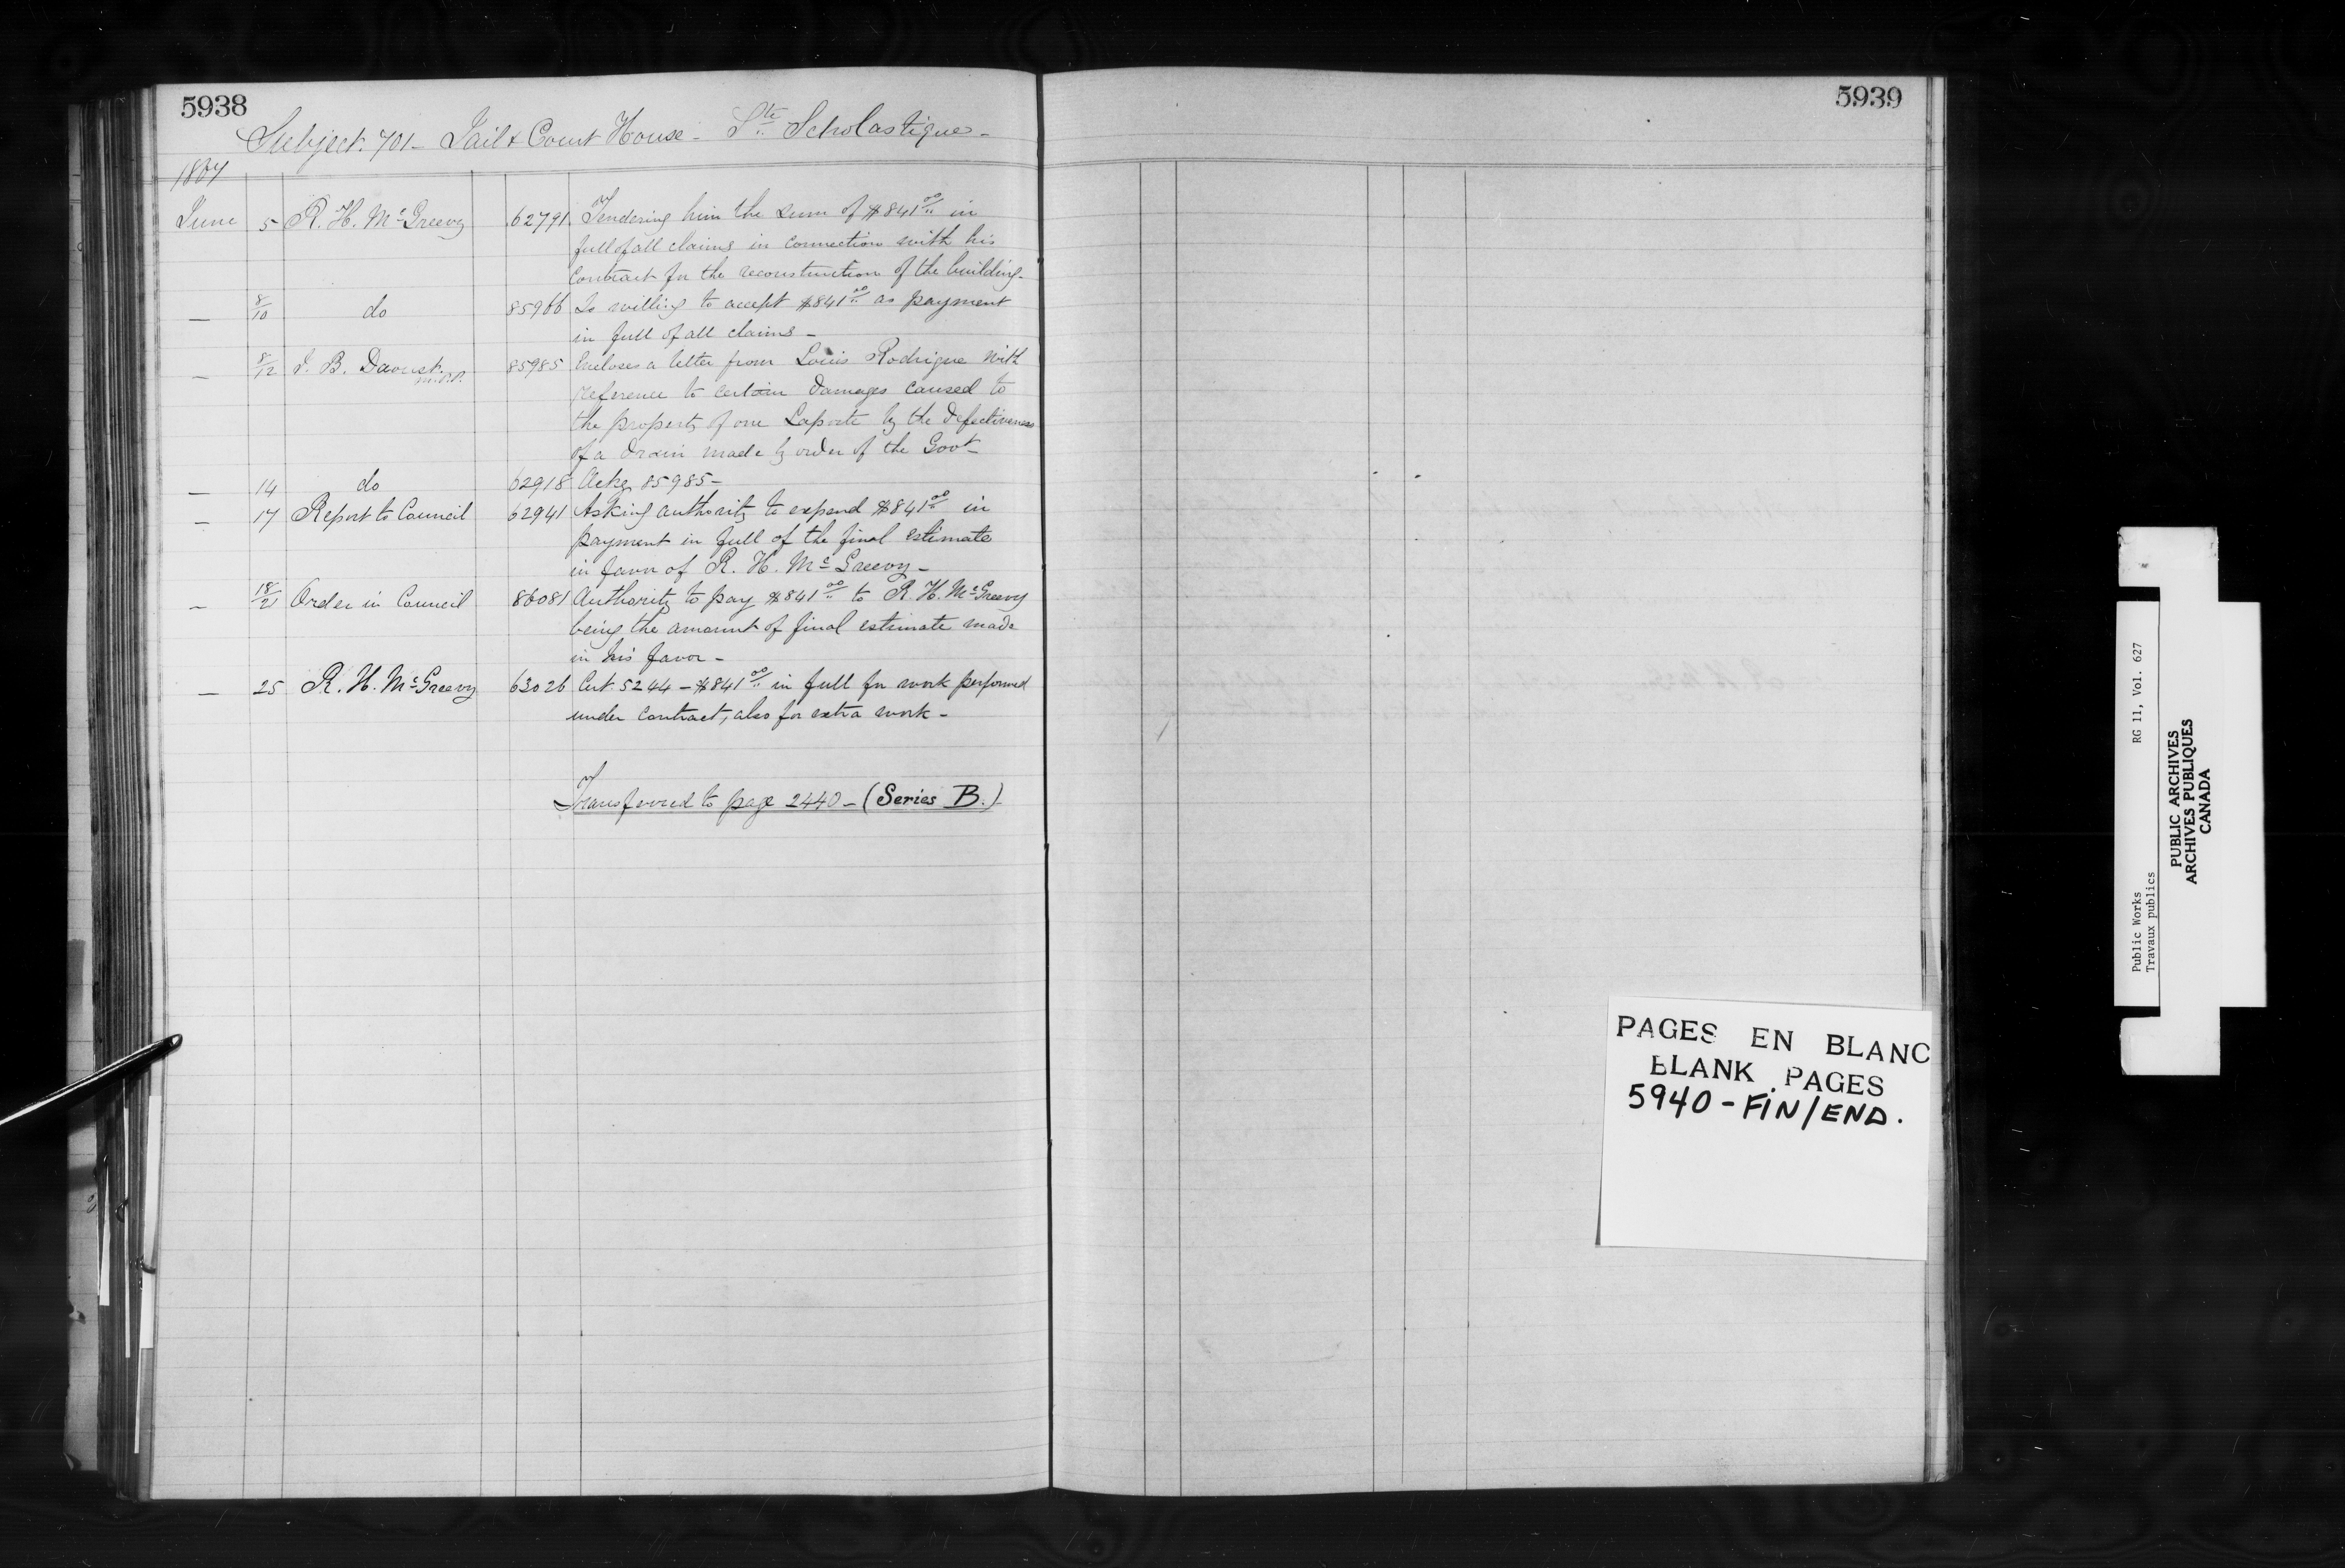 5938
Subject. 701 - Jail & Court House - Ste Scholastique -
1867
June 5 R. H. McGreevy 62791 Tendering him the sum of $841.00 in
full of all claims in connection with his
contract for the reconstruction of the building -
— 8/10 do 85966 Is willing to accept $841.00 as payment
in full of all claims -
— 8/12 J. B. Daoust M.P.P. 85985 Encloses a letter from Louis Rodrigue with
reference to certain damages caused to
the property of one Laporte by the defectiveness
of a drain made by order of the Govt -
— 14 do 62918 Ackg 85985 -
— 17 Report to Council 62941 Asking authority to expend $841.00 in
payment in full of the final estimate
in favor of R. H. McGreevy -
— 18/21 Order in Council 86081 Authority to pay $841.00 to R. H. McGreevy
being the amount of final estimate made
in his favor -
— 25 R. H. McGreevy 63026 Cert. 5244 - $841.00 in full for work performed
under contract, also for extra work -
Transferred to page 2440 - (Series B.)
5939
PAGES EN BLANC
BLANK PAGES
5940 - FIN/END.
Public Works RG 11, Vol. 627
Travaux publics
PUBLIC ARCHIVES
ARCHIVES PUBLIQUES
CANADA